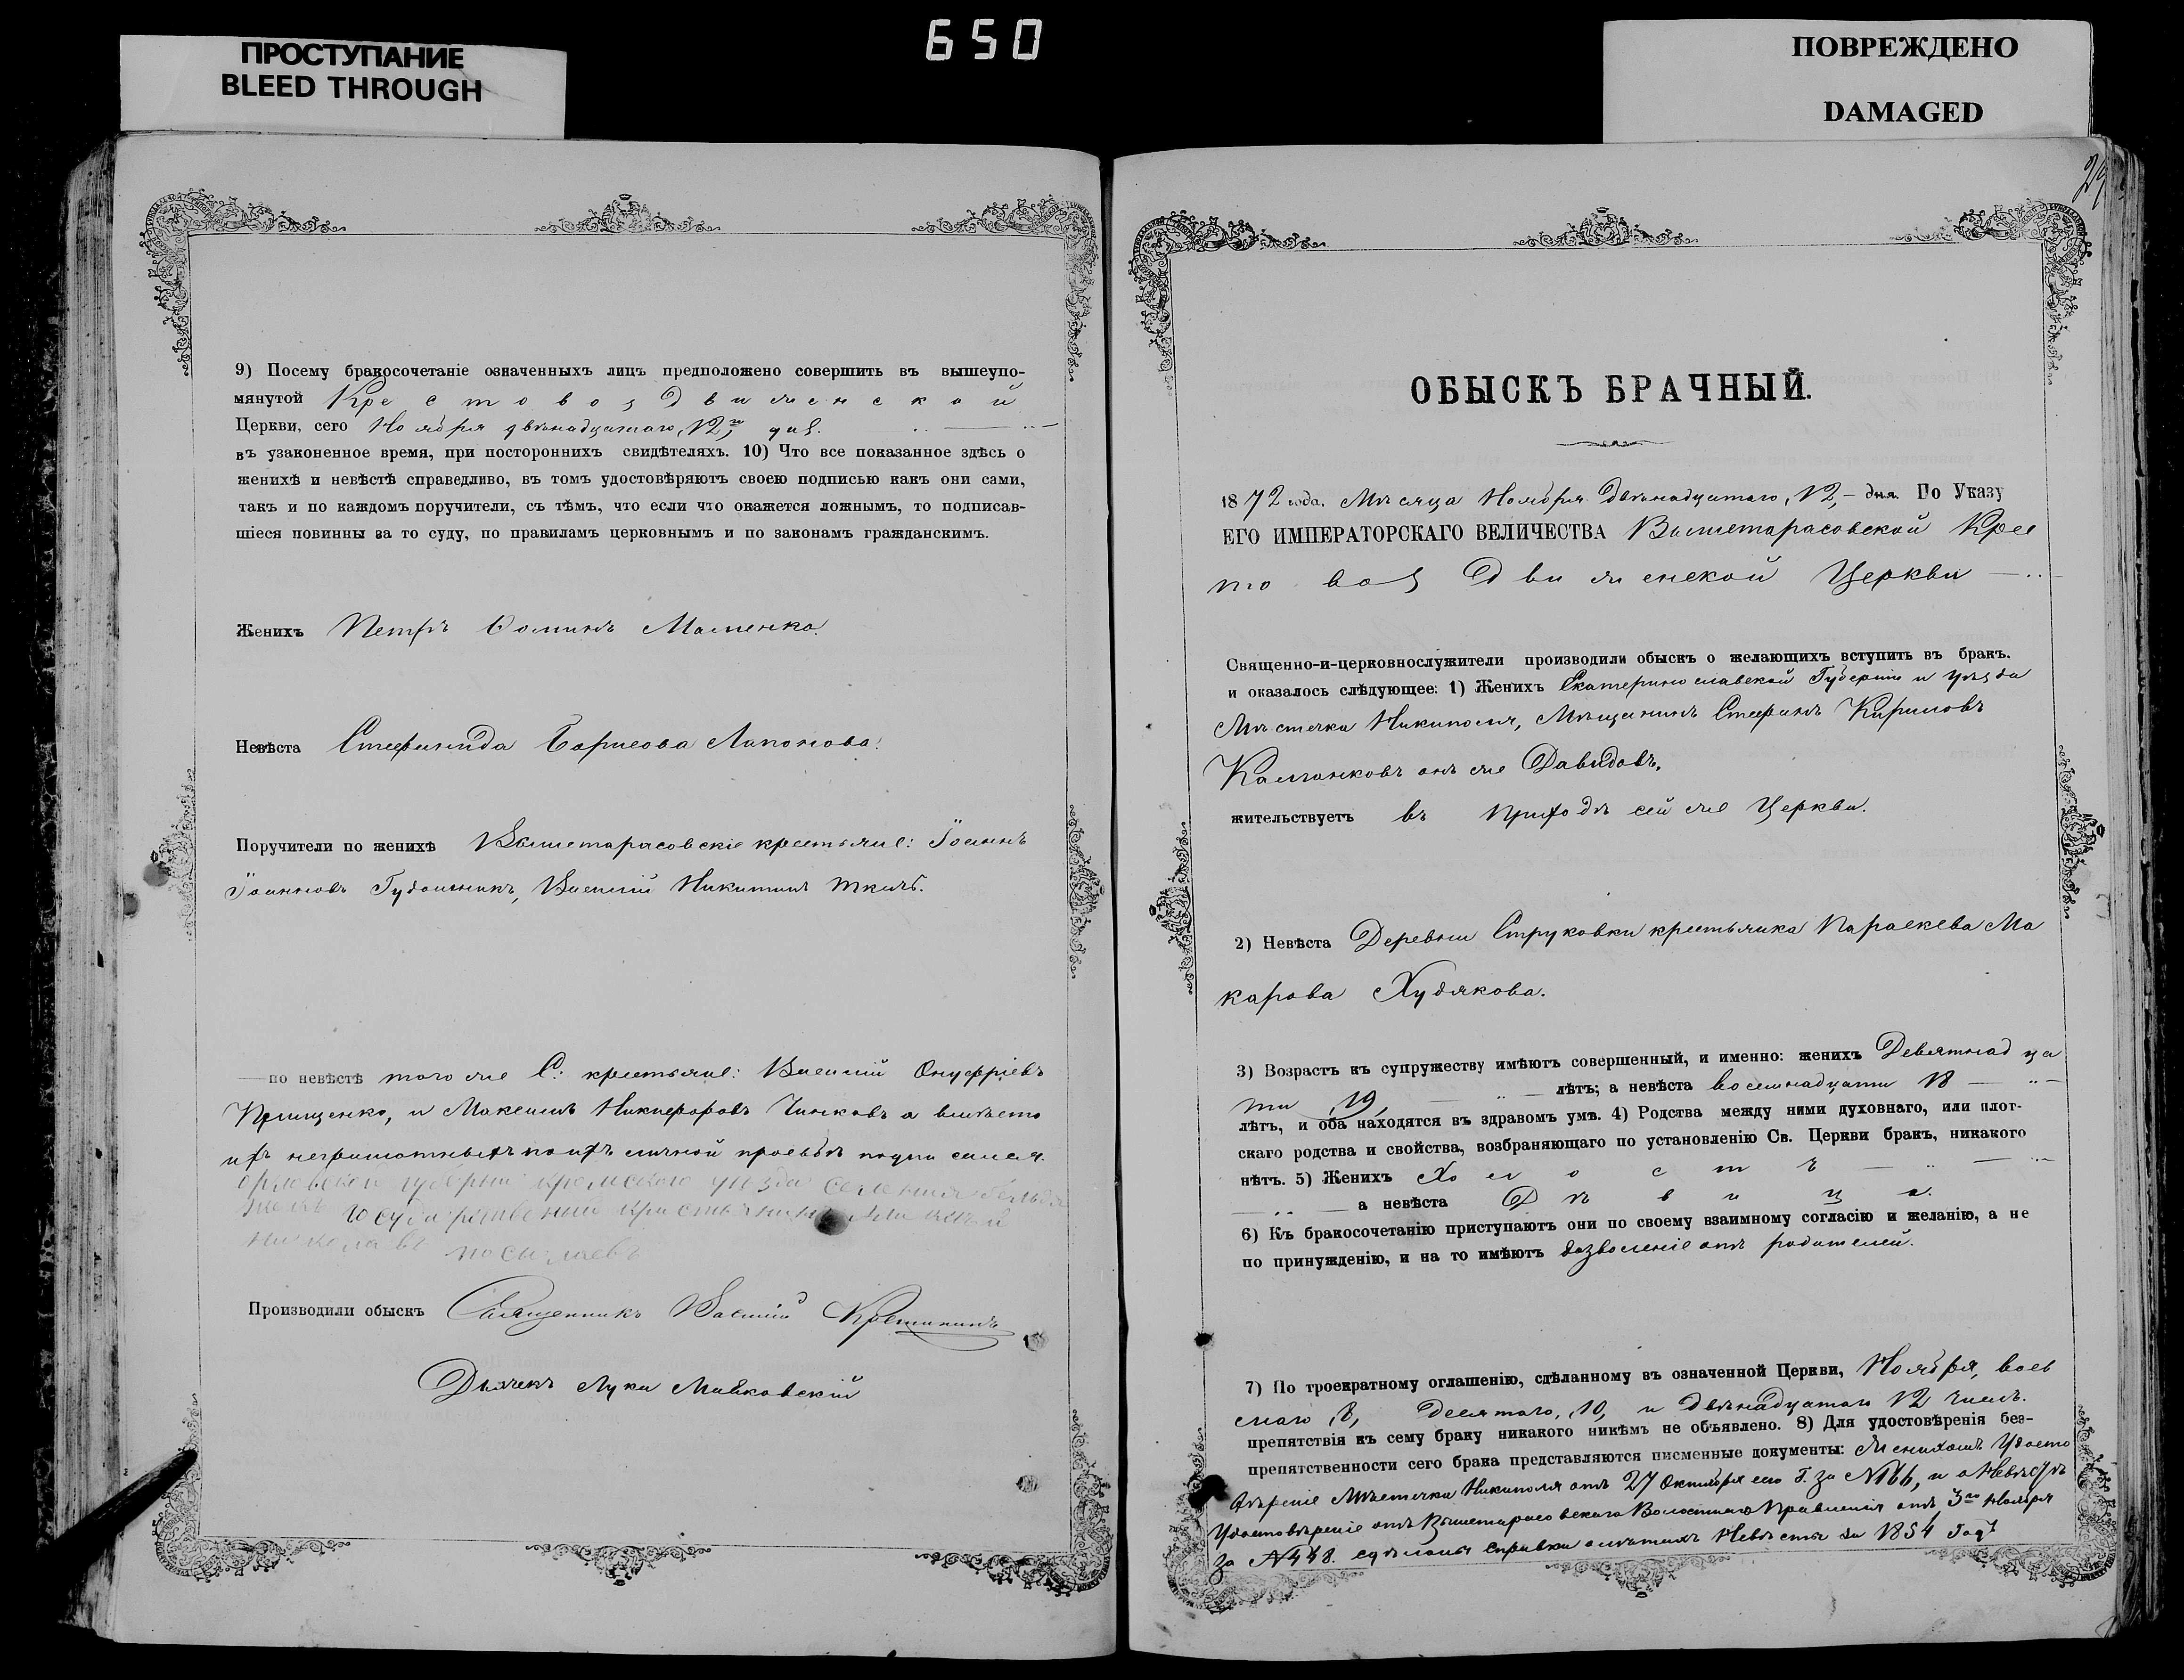 ПРОСТУПАНИЕ
BLEED THROUGH
650
ПОВРЕЖДЕНО
DAMAGED
9) Посему бракосочетаніе означенныхъ лицъ предположено совершить въ вышеупо-
мянутой Крестовоздвиженской
Церкви, сего Ноября двѣнадцатаго, 12, дня.
въ узаконенное время, при постороннихъ свидѣтеляхъ. 10) Что все показанное здѣсь о
женихѣ и невѣстѣ справедливо, въ томъ удостовѣряютъ своею подписью какъ они сами,
такъ и по каждомъ поручители, съ тѣмъ, что если что окажется ложнымъ, то подписав-
шіеся повинны за то суду, по правиламъ церковнымъ и по законамъ гражданскимъ.
Женихъ Петръ Ѳоминъ
Невѣста Стефанида Борисова
Поручители по женихѣ Вышетарасовскіе крестьяне: Іоаннъ
Іоанновъ Василій Никитинъ Ткачь.
по невѣстѣ того же С: крестьяне: Василій Онуфріевъ
и Максимъ Никифоровъ а вмѣсто
ихъ неграмотныхъ по ихъ личной прозьбѣ
губерніи уѣзда
Производили обыскъ Священникъ Василій
Дьячекъ Лука
ОБЫСКЪ БРАЧНЫЙ.
1872 года. Мѣсяца Ноября двѣнадцатаго, 12, дня. По Указу
ЕГО ИМПЕРАТОРСКАГО ВЕЛИЧЕСТВА Вышетарасовской Крес
товоздвиженской Церкви
Священно-и-церковнослужители производили обыскъ о желающихъ вступить въ бракъ.
и оказалось слѣдующее: 1) Женихъ Екатеринославской Губерніи и уѣзда
Мѣстечка Никиполя, Мѣщанинъ Стефанъ Кириловъ
онъ же Давидовъ,
жительствуетъ въ приходѣ сей же Церкви.
2) Невѣста Деревни Струковки крестьянка Параскева Ма
карова Худякова.
3) Возрастъ къ супружеству имѣютъ совершенный, и именно: женихъ Девятнадца
ти ,19, лѣтъ; а невѣста восемнадцати 18
лѣтъ, и оба находятся въ здравомъ умѣ. 4) Родства между ними духовнаго, или плот-
скаго родства и свойства, возбраняющаго по установленію Св. Церкви бракъ, никакого
нѣтъ. 5) Женихъ Холостъ
а невѣста Дѣвица.
6) Къ бракосочетанію приступаютъ они по своему взаимному согласію и желанію, а не
по принужденію, и на то имѣютъ дозволеніе отъ родителей.
7) По троекратному оглашенію, сдѣланному въ означенной Церкви, Ноября, вось
маго ,8, десятаго, ,10, и двѣнадцатаго 12 числъ.
препятствія къ сему браку никакого никѣмъ не объявлено. 8) Для удостовѣренія без-
препятственности сего брака представляются писменные документы: Женихомъ Удосто
вѣреніе Мѣстечка Никиполя отъ 27 Октября сего Г. за №166, и о Невѣстѣ
Удостовѣреніе отъ Вышетарасовскаго Волостнаго Правленія отъ 3го Ноября
за №448. сдѣланы справки о лѣтахъ Невѣсты за 1854 Годъ